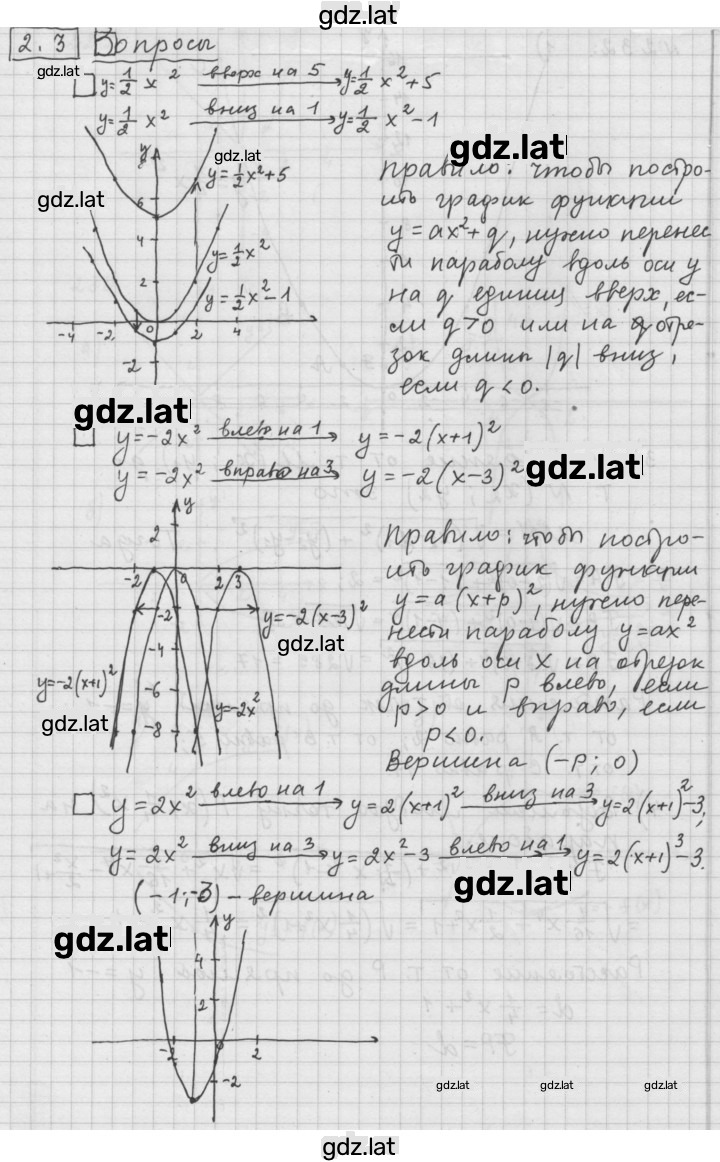 gdz.lat
2.3 Вопросы
gdz.lat
y=1/2 x² вверх на 5 y=1/2 x²+5
y=1/2 x² вниз на 1 y=1/2 x²-1
gdz.lat
y
gdz.lat
y=1/2x²+5
gdz.lat
6
4
y=1/2x²
2
y=1/2x²-1
-4 -2 0 2 4
-2
Правило: чтобы постро-
ить график функции
y=ax²+q, нужно перенес
ти параболу вдоль оси y
на q единиц вверх, ес-
ли q>0 или на отре-
зок длины |q| вниз,
если q<0.
gdz.lat
y=-2x² влево на 1 y=-2(x+1)²
y=-2x² вправо на 3 y=-2(x-3)²
gdz.lat
y
2
-2 0 2 3
-2
y=-2(x-3)²
gdz.lat
-4
y=-2(x+1)²
-6
y=-2x²
gdz.lat
-8
Правило: чтобы постро-
ить график функции
y=a(x+p)², нужно пере-
нести параболу y=ax²
вдоль оси x на отрезок
длины p влево, если
p>0 и вправо, если
p<0.
Вершина (-p; 0)
y=2x² влево на 1 y=2(x+1)² вниз на 3 y=2(x+1)²-3;
y=2x² вниз на 3 y=2x²-3 влево на 1 y=2(x+1)³-3.
(-1;-3) - вершина
gdz.lat
gdz.lat
y
4
2
-2 0 2
-2
gdz.lat gdz.lat gdz.lat
gdz.lat